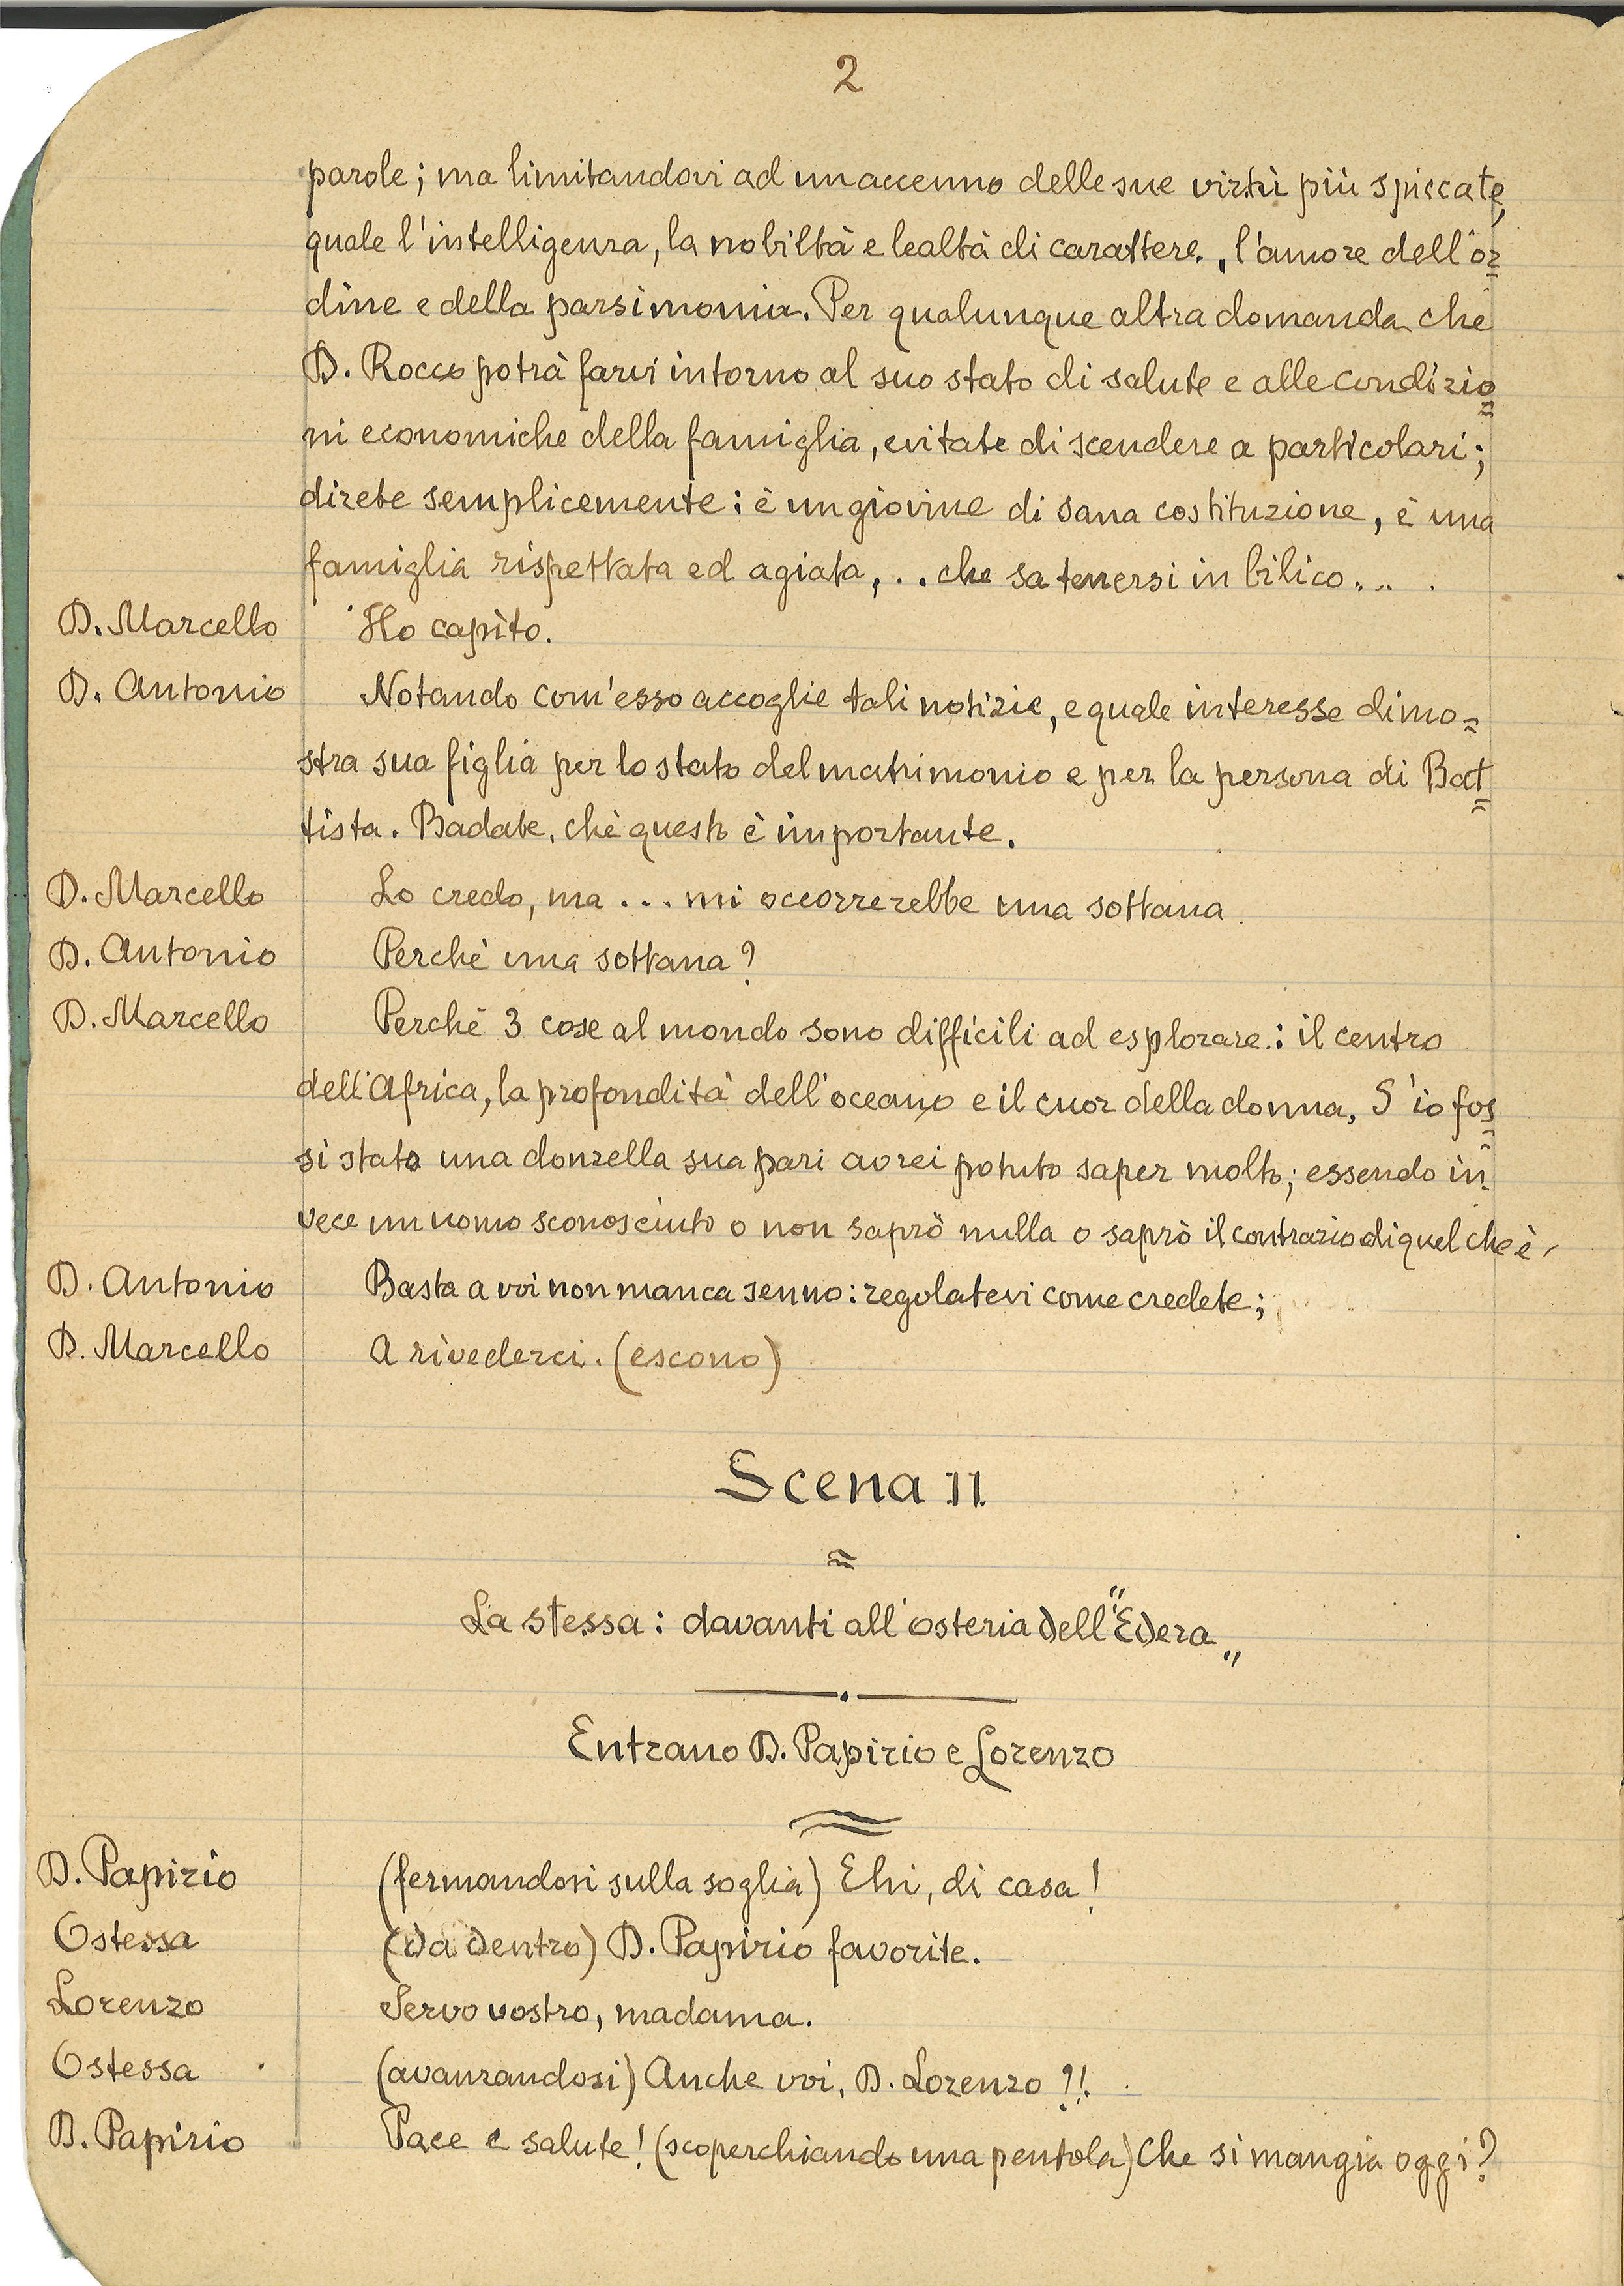 2
parole; ma limitandovi ad un accenno delle sue virtù più spiccate,
quale l'intelligenza, la nobiltà e lealtà di carattere, l'amore dell'or=
dine e della parsimonia. Per qualunque altra domanda che
D. Rocco potrà farvi intorno al suo stato di salute e alle condizio=
ni economiche della famiglia, evitate di scendere a particolari;
direte semplicemente: è un giovine di sana costituzione, è una
famiglia rispettata ed agiata,... che sa tenersi in bilico....
D. Marcello Ho capito.
D. Antonio Notando com'esso accoglie tali notizie, e quale interesse dimo=
stra sua figlia per lo stato del matrimonio e per la persona di Bat=
tista. Badate, chè questo è importante.
D. Marcello Lo credo, ma ... mi occorrerebbe una sottana.
D. Antonio Perchè una sottana?
D. Marcello Perchè 3 cose al mondo sono difficili ad esplorare: il centro
dell'Africa, la profondità dell'oceano e il cuor della donna. S'io fos=
si stato una donzella sua pari avrei potuto saper molto; essendo in=
vece un uomo sconosciuto o non saprò nulla o saprò il contrario di quel che è.
D. Antonio Basta a voi non manca senno: regolatevi come credete;
D. Marcello A rivederci. (escono)
Scena II
La stessa: davanti all'osteria dell'"Edera"
Entrano D. Papirio e Lorenzo
D. Papirio (fermandosi sulla soglia) Ehi, di casa!
Ostessa (da dentro) D. Papirio favorite.
Lorenzo Servo vostro, madama.
Ostessa (avanzandosi) Anche voi, D. Lorenzo?!
D. Papirio Pace e salute! (scoperchiando una pentola) Che si mangia oggi?